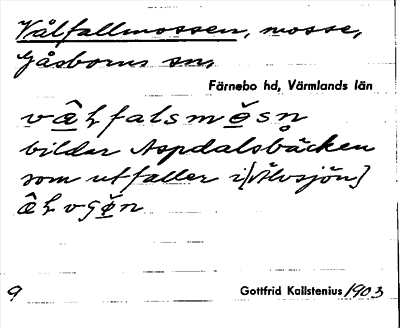 Vålfallmossen, mosse,
Gåsborns sn,
Färnebo hd, Värmlands län
bildar Aspdalsbäcken
som utfaller i [Älvsjön]
9 Gottfrid Kallstenius 1903